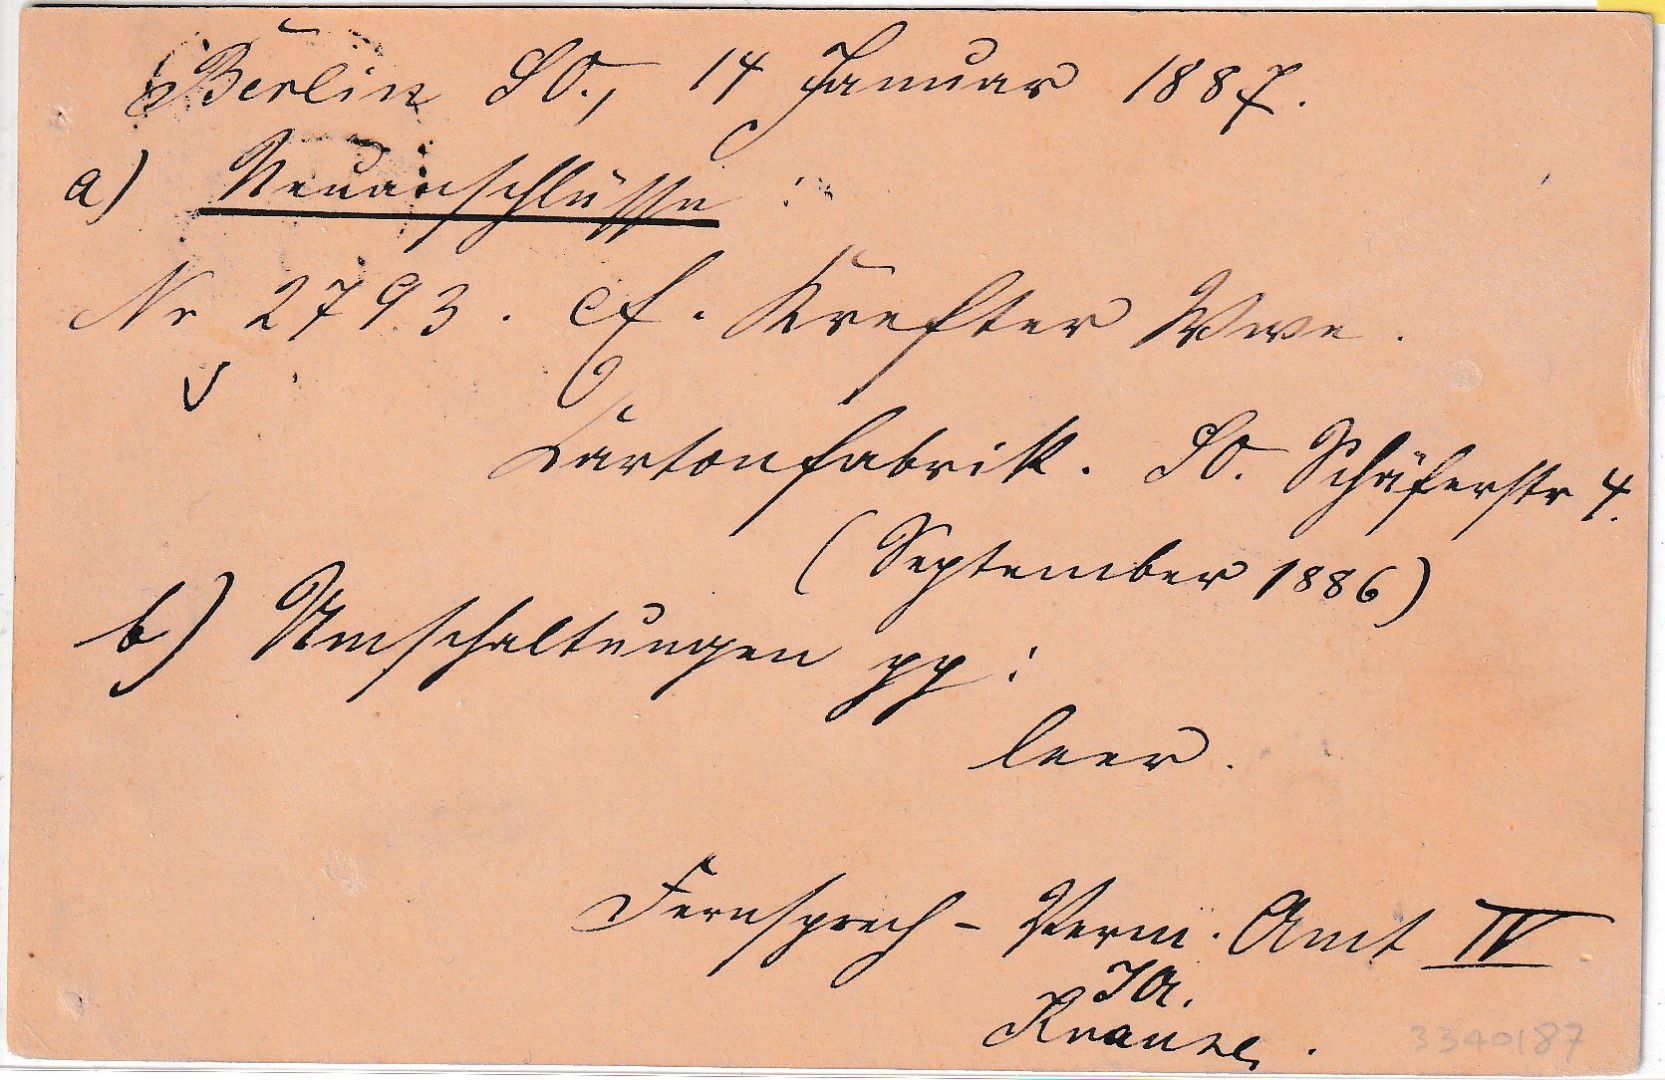 Berlin SO., 14 Januar 1887.
a) Neuanschlüsse:
Nr 2793. C. Krefter Wwe.
Cartonfabrik. SO. Schäferstr 4.
(September 1886)
b) Umschaltungen pp:
leer.
Fernsprech-Verm. Amt IV
IA.
Krause.
3340187